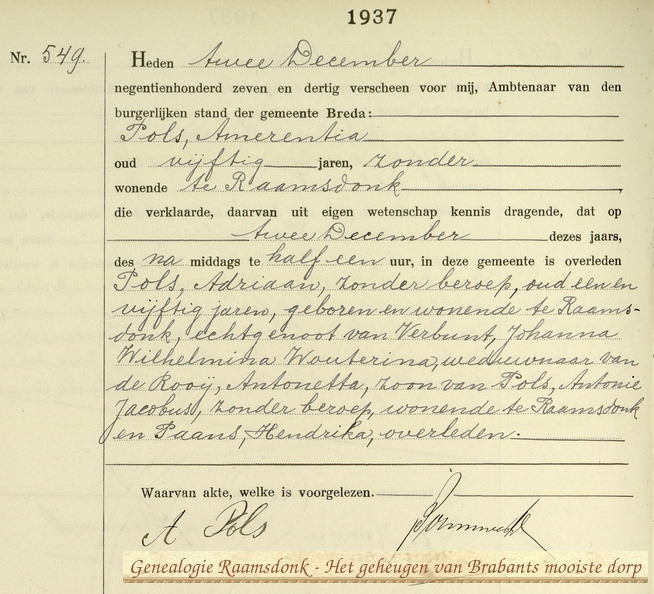 1937
Nr. 549. Heden twee December
negentienhonderd zeven en dertig verscheen voor mij, Ambtenaar van den
burgerlijken stand der gemeente Breda:
Pols, Amerentia
oud vijftig jaren, zonder
wonende te Raamsdonk,
die verklaarde, daarvan uit eigen wetenschap kennis dragende, dat op
twee December dezes jaars,
des na middags te half een uur, in deze gemeente is overleden
Pols, Adriaan, zonder beroep, oud een en
vijftig jaren, geboren en wonende te Raams-
donk, echtgenoot van Verbunt, Johanna
Wilhelmina Wouterina, weduwnaar van
de Rooij, Antonetta, zoon van Pols, Antonie
Jacobus, zonder beroep, wonende te Raamsdonk
en Paans, Hendrika, overleden.
Waarvan akte, welke is voorgelezen.
A Pols
Genealogie Raamsdonk - Het geheugen van Brabants mooiste dorp